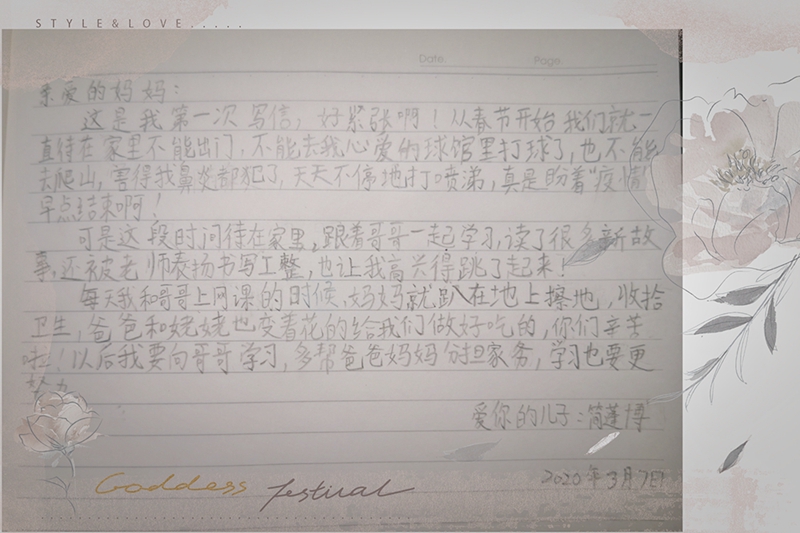 STYLE&LOVE.....
Date.
Page.
亲爱的妈妈：
这是我第一次写信，好紧张啊！从春节开始我们就一
直待在家里不能出门，不能去我心爱的球馆里打球了，也不能
去爬山，害得我鼻炎都犯了，天天不停地打喷涕，真是盼着“疫情”
早点结束啊！
可是这段时间待在家里，跟着哥哥一起学习，读了很多新故
事，还被老师表扬书写工整，也让我高兴得跳了起来！
每天我和哥哥上网课的时候，妈妈就趴在地上擦地，收拾
卫生，爸爸和姥姥也变着花的给我们做好吃的，你们辛苦
啦！以后我要向哥哥学习，多帮爸爸妈妈分担家务，学习也要更
努力
爱你的儿子：简莲博
2020年3月7日
Goddess festival